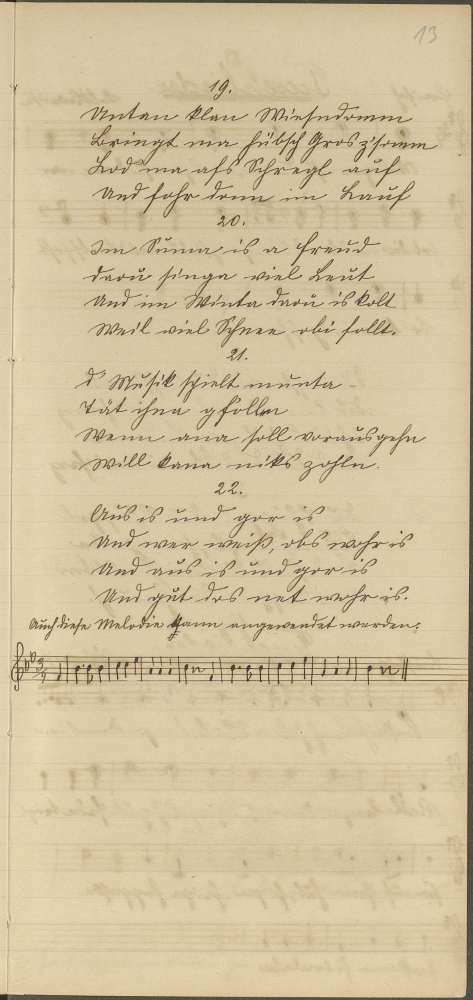 13
19.
Untan klan Wiesndomm
Bringt ma hübsch Gros z'somm
Lod' ma afs Schregl auf
Und fohr donn im Lauf
20.
Im Summa is a Freud
Daou singa viel Leut
Und im Winta daou is kolt
Weil viel Schnee obi follt.
21.
D' Musik spielt munta
Tät ihna gfolln
Wenn ana soll vorausgehn
Will kana niks zohln.
22.
Aus is und gor is
Und wer weiß, obs wohr is
Und aus is und gor is
Und gut das net wohr is.
Auch diese Melodie kann angewendet werden: